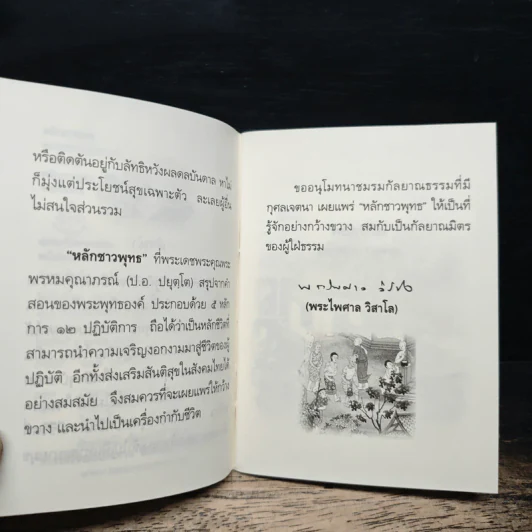 หรือติดตันอยู่กับลัทธิหวังผลดลบันดาล หาไม่
ก็มุ่งแต่ประโยชน์สุขเฉพาะตัว ละเลยผู้อื่น
ไม่สนใจส่วนรวม
"หลักชาวพุทธ" ที่พระเดชพระคุณพระ
พรหมคุณาภรณ์ (ป.อ. ปยุตฺโต) สรุปจากคำ
สอนของพระพุทธองค์ ประกอบด้วย ๕ หลัก
การ ๑๒ ปฏิบัติการ ถือได้ว่าเป็นหลักชีวิตที่
สามารถนำความเจริญงอกงามมาสู่ชีวิตของผู้
ปฏิบัติ อีกทั้งส่งเสริมสันติสุขในสังคมไทยได้
อย่างสมสมัย จึงสมควรที่จะเผยแพร่ให้กว้าง
ขวาง และนำไปเป็นเครื่องกำกับชีวิต
ขออนุโมทนาชมรมกัลยาณธรรมที่มี
กุศลเจตนา เผยแพร่ "หลักชาวพุทธ" ให้เป็นที่
รู้จักอย่างกว้างขวาง สมกับเป็นกัลยาณมิตร
ของผู้ใฝ่ธรรม
(พระไพศาล วิสาโล)